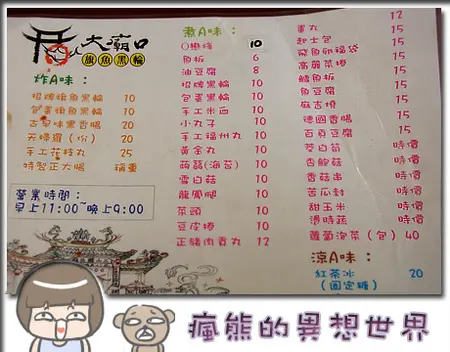 大廟口
旗魚黑輪
炸A味：
招牌旗魚黑輪 10
包蛋旗魚黑輪 10
古早味黑香腸 20
天婦羅（份） 20
手工花枝丸 25
特製正大腸 稱重
營業時間：
早上11:00~晚上9:00
煮A味：
10
魚板 6
油豆腐 8
招牌黑輪 10
包蛋黑輪 10
手工米血 10
小丸子 10
手工福州丸 10
黃金丸 10
蒟蒻(海苔) 10
雪白菇 10
龍鳳腿 10
菜頭 10
豆皮捲 10
正豬肉貢丸 12
12
蛋丸 15
起士包 15
飛魚卵福袋 15
高麗菜捲 15
鱈魚板 15
魚豆腐 15
麻吉燒 15
德國香腸 15
百頁豆腐 15
茭白筍 時價
杏鮑菇 時價
香菇串 時價
苦瓜封 時價
甜玉米 時價
燙時蔬 時價
蘿蔔泡菜（包） 40
涼A味：
紅茶冰 20
（固定糖）
瘋熊的異想世界